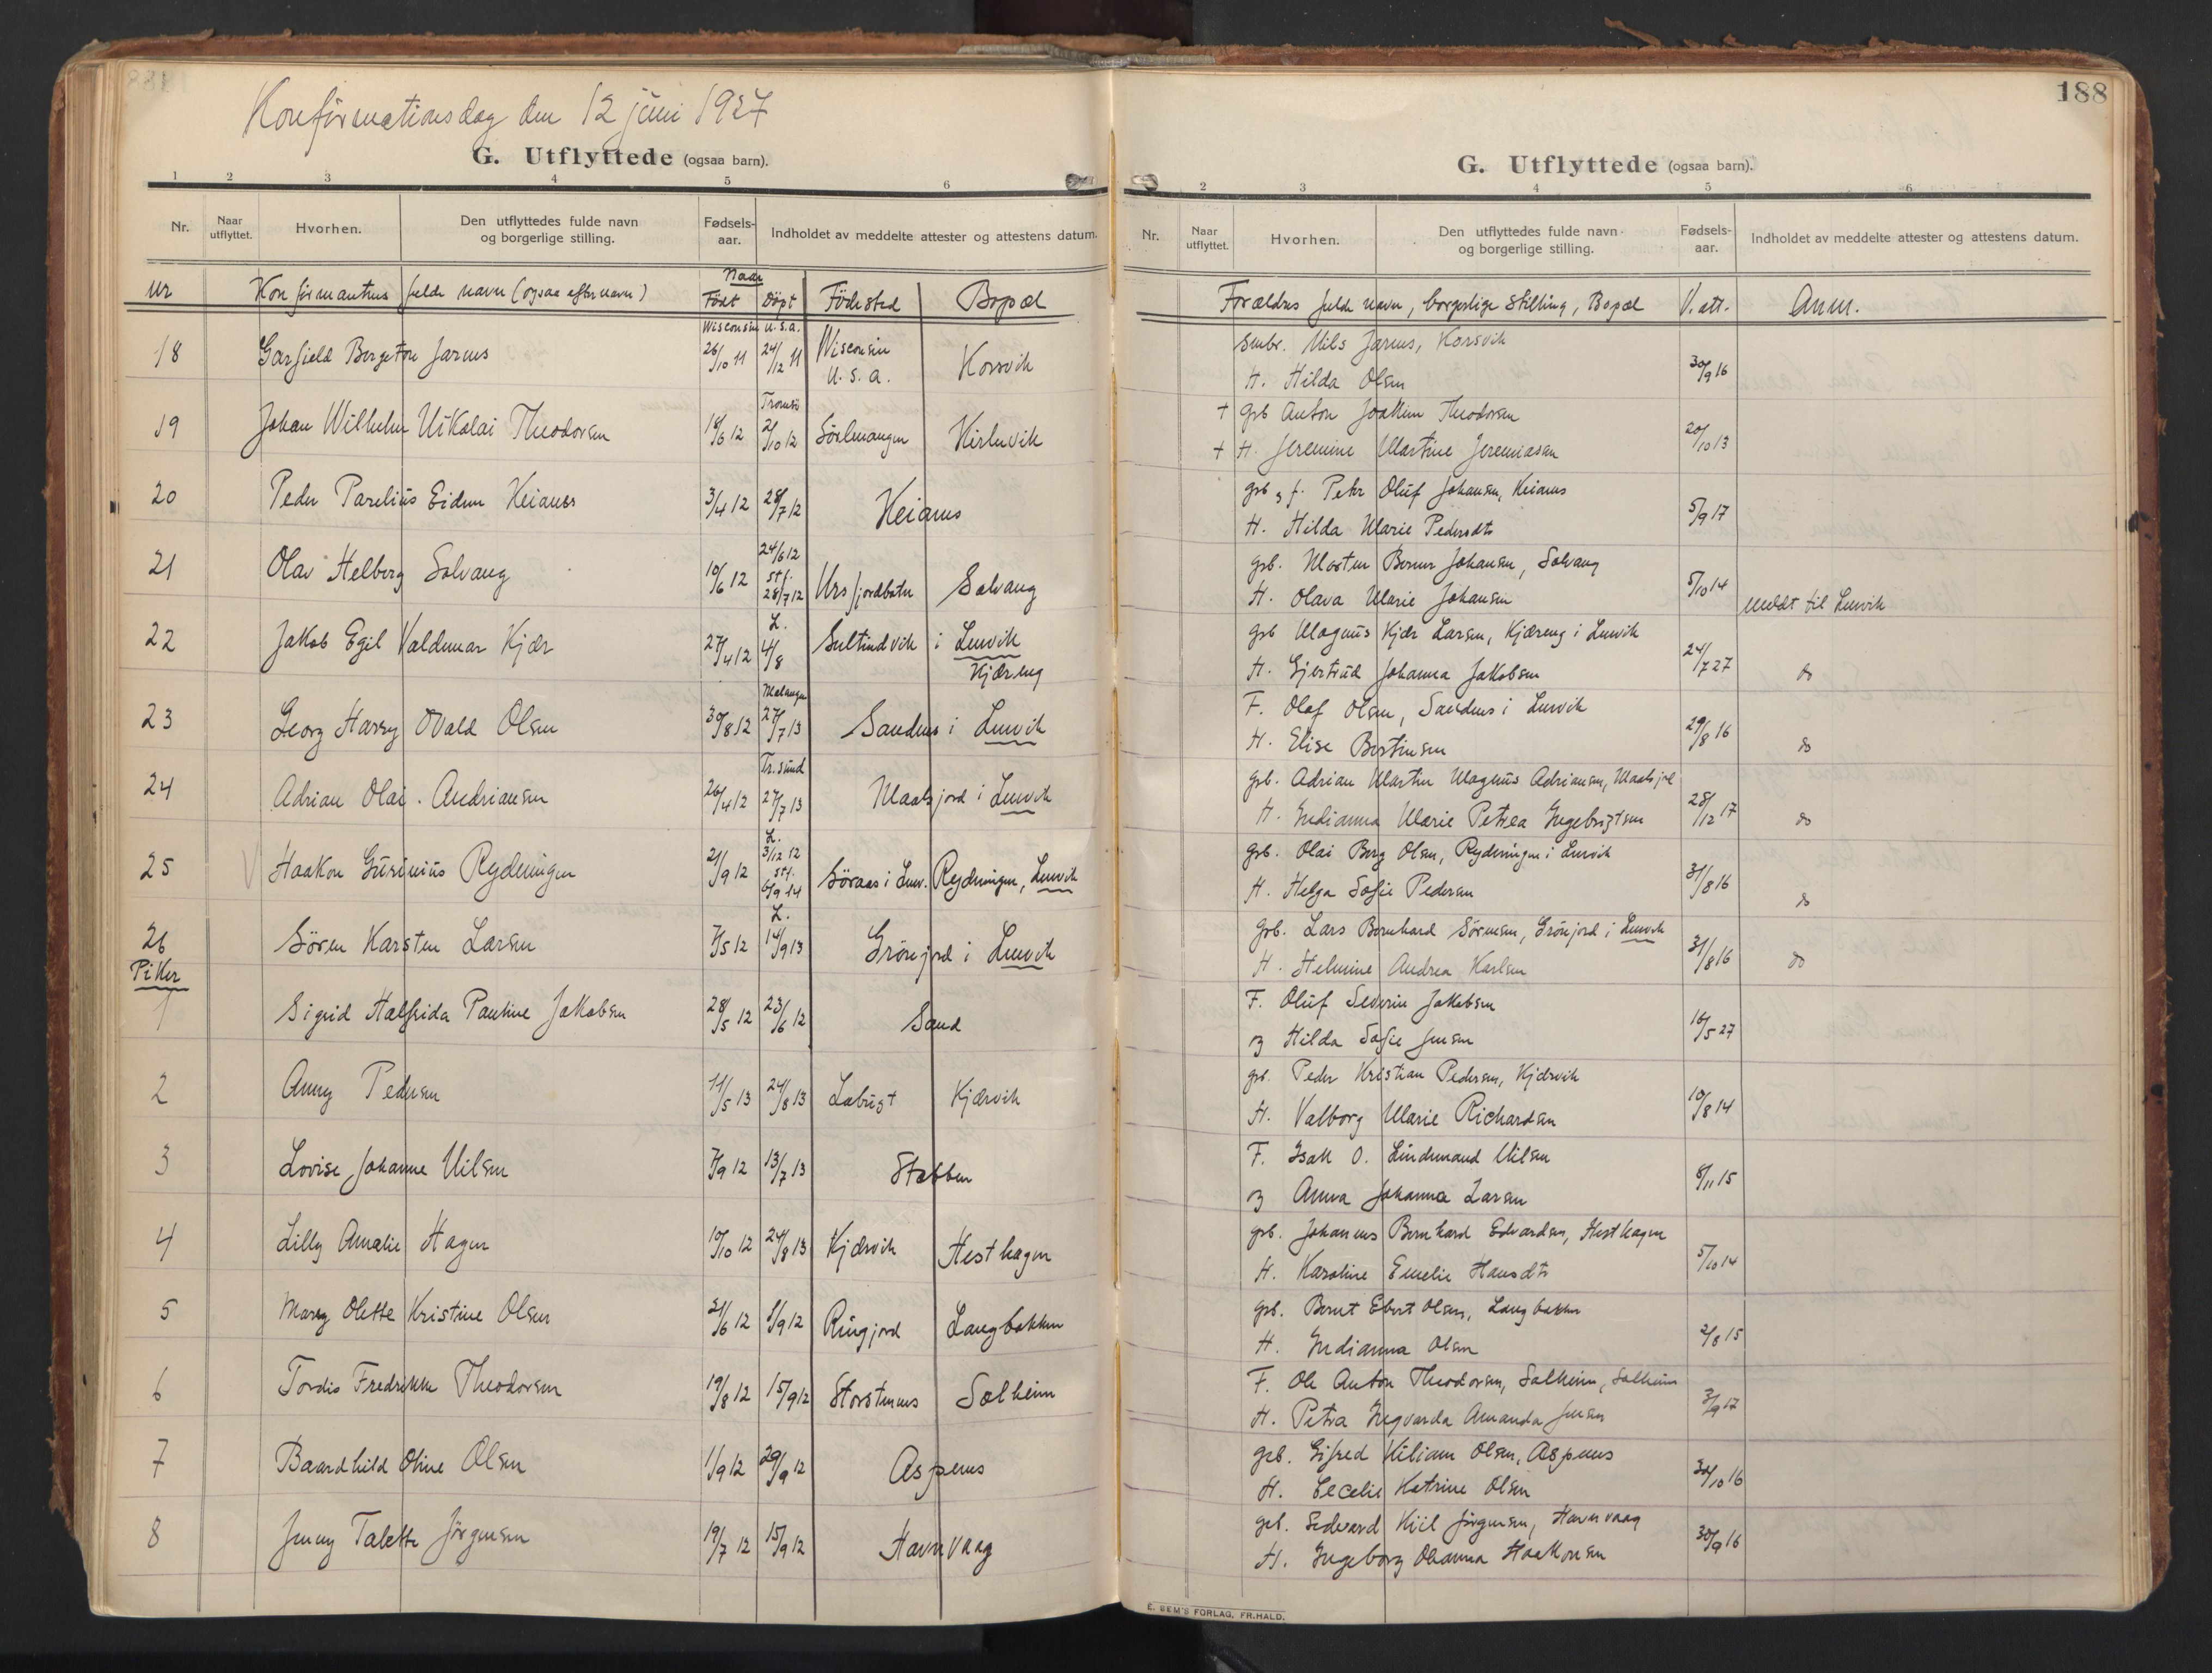 188
Konfirmationsdag den 12 juni 1927
G. Utflyttede (ogsaa barn).
1 2 3 4 5 6
Nr. Naar utflyttet. Hvorhen. Den utflyttedes fulde navn og borgerlige stilling. Fødsels-aar. Indholdet av meddelte attester og attestens datum.
Nr Konfirmantens fulde navn (ogsaa efternavn) Naar Födt Döpt Födested Bopæl
18 Garfield Bergeton Jarnes Wisconsin U.S.a. 26/10 11 24/12 11 Wisconsin U.S.a. Korsvik
19 Johan Wilhelm Nikolai Theodorsen 18/6 12 Tromsö 2/10 12 Kirkevik
20 Peder Parelius Eidum Keianes 3/4 12 28/7 12 Keianes
21 Olav Helberg Solvang 10/6 12 24/6 12 stf. 28/7 12 Ursfjordbotn Solvang
22 Jakob Egil Valdemar Kjær 27/4 12 L. 4/8 Sultindvik i Lenvik Kjæreng
23 Georg Harry Olsen 30/8 12 Malangen 27/7 13 Sandnes i Lenvik
24 Adrian Olai Andriansen 26/4 12 Tr.sund 27/7 13 Maalsjord i Lenvik
25 Haakon Gusinius Rydningen 21/9 12 L. 3/12 12 stf. 6/9 14 Söraas i Lenv. Rydningen, Lenvik
26 Sören Karsten Larsen 7/5 12 L. 14/9 13 Grönjord i Lenvik
Piker
1 Sigrid Halfrida Pauline Jakobsen 28/5 12 23/6 12 Sand
2 Anny Pedersen 11/5 13 24/8 13 Labugt Kjærvik
3 Lovise Johanne Nilsen 7/9 12 13/7 13 Stobben
4 Lilly Amalie Hagen 10/10 12 24/8 13 Kjærvik Hesthagen
5 Mary Olette Kristine Olsen 21/6 12 1/9 12 Ringjord Langbakken
6 Tordis Fredrikke Theodorsen 19/8 12 15/9 12 Storstennes Solheim
7 Baardhild Oline Olsen 1/9 12 29/9 12 Aspenes
8 Jenny Talette Jörgensen 19/7 12 15/9 12 Havnvaag
G. Utflyttede (ogsaa barn).
2 3 4 5 6
Nr. Naar utflyttet. Hvorhen. Den utflyttedes fulde navn og borgerlige stilling. Fødsels-aar. Indholdet av meddelte attester og attestens datum.
Forældres fulde navn, borgerlige stilling, Bopæl V.att. Anm.
Smbr. Nils Jarnes, Korsvik
H. Hilda Olsen 30/9 16
+ grb Anton Joakim Theodorsen
+ H. Jeremine Martine Jeremiasen 20/10 13
grb s f. Peter Oluf Johansen, Keianes
H. Hilda Marie Pedersdtr 5/9 17
grb. Morten Berner Johansen, Solvang
H. Olava Marie Johansen 5/10 14
meldt til Lenvik
grb Magnus Kjær Larsen, Kjæreng i Lenvik
H. Gjertrud Johanna Jakobsen 24/7 27 do
F. Olaf Olsen, Sandnes i Lenvik
H. Elise Bertinsen 29/8 16 do
grb. Adrian Martin Magnus Adriansen, Maalsjord
H. Indianna Marie Petrea Ingebrigtsen 28/12 17 do
grb. Olai Berg Olsen, Rydningen i Lenvik
H. Helga Sofie Pedersen 31/8 16 do
grb. Lars Bernhard Sörensen, Grönjord i Lenvik
H. Helmine Andrea Karlsen 31/8 16 do
F. Oluf Severin Jakobsen
og Hilda Sofie Jensen 16/5 27
grb. Peder Kristian Pedersen, Kjærvik
H. Valborg Marie Richardsen 10/8 14
F. Isak O. Lindemand Nilsen
og Anna Johanna Larsen 8/11 15
grb. Johannes Bernhard Edvardsen, Hesthagen
H. Karoline Emelie Hansdtr 5/10 14
grb. Bernt Ebert Olsen, Langbakken
H. Indianna Olsen 2/8 15
F. Ole Anton Theodorsen, Solheim, Solheim
H. Petra Ingvarda Amanda Jensen 3/9 17
grb. Sifred Kiliam Olsen, Aspenes
H. Cecelie Katrine Olsen 30/10 16
grb. Sedvard Kiil Jörgensen, Havnvaag
H. Ingeborg Olianna Haakonsen 30/9 16
E. SEM'S FORLAG, FR.HALD.